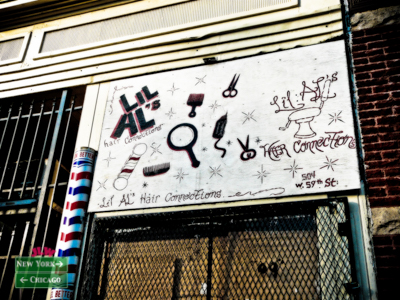 LIL
AL's
hair Connections
Lil' AL's
HAIR Connections
504
W. 59th St
"Lil' AL" Hair Connections
NEW YORK
CHICAGO